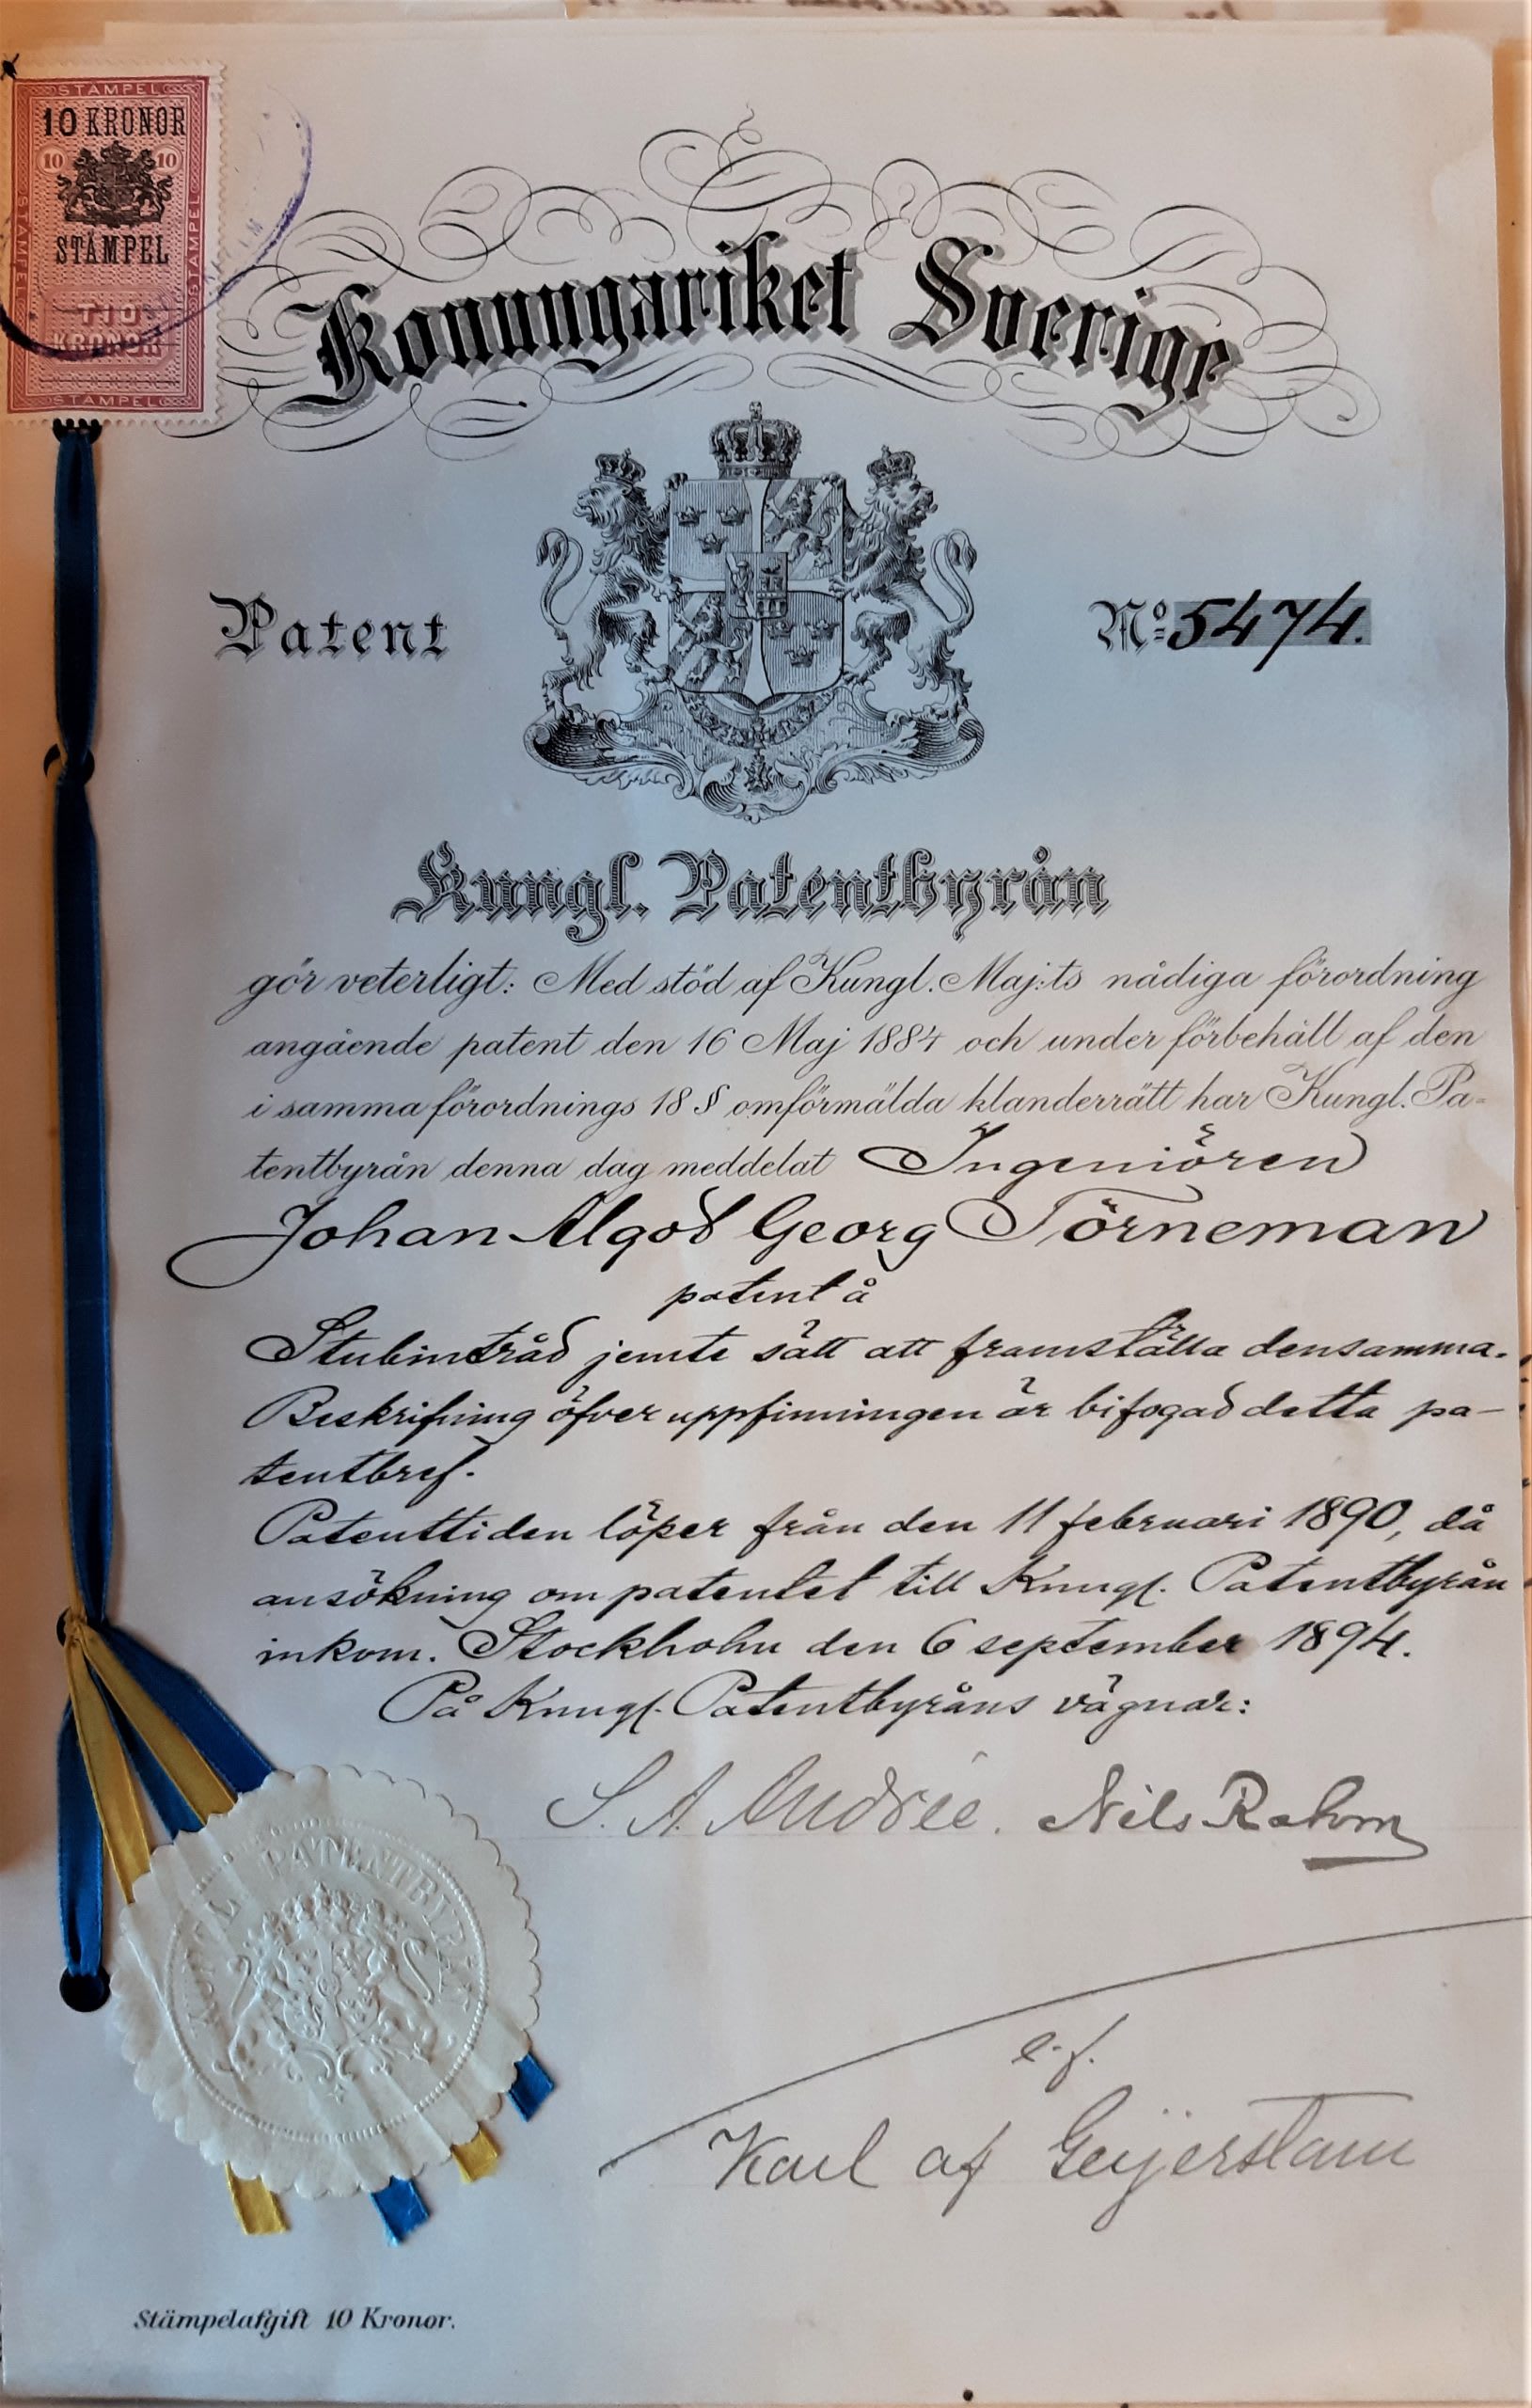 STÄMPEL
10 KRONOR
10 10
STÄMPEL
STÄMPEL
STÄMPEL
TIO
KRONOR
STÄMPEL
Konungariket Sverige
Patent
No 5474.
Kungl. Patentbyrån
gör veterligt: Med stöd af Kungl. Maj:ts nådiga förordning
angående patent den 16 Maj 1884 och under förbehåll af den
i samma förordnings 18 § omförmälda klanderrätt har Kungl. Pa-
tentbyrån denna dag meddelat Ingeniören
Johan Algod Georg Törneman
patent å
Stubintråd jemte sätt att framställa densamma.
Beskrifning öfver uppfinningen är bifogad detta pa-
tentbref.
Patenttiden löper från den 11 februari 1890, då
ansökning om patentet till Kungl. Patentbyrån
inkom. Stockholm den 6 september 1894.
På Kungl. Patentbyråns vägnar:
S. A. Andrée. Nils Rahm
KUNGL. PATENTBYRÅN
e.f.
Karl af Geijerstam
Stämpelafgift 10 Kronor.